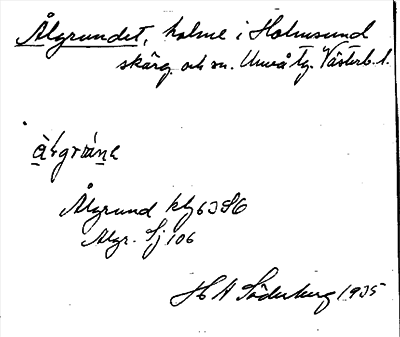 Ålgrundet, holme i Holmsund
skärg. och sn. Umeå tg. Västerb. l.
Ålgrund
Algr. Sj 106
H A Söderberg 1935